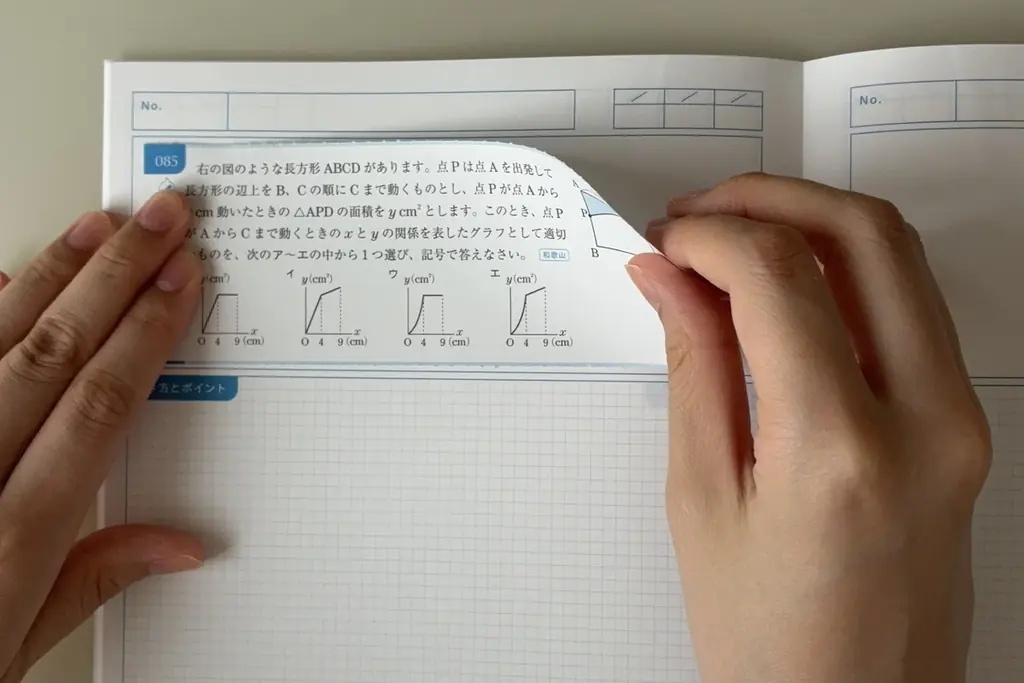 No.
No.
085
右の図のような長方形 ABCD があります。点 P は点 A を出発して
長方形の辺上を B、C の順に C まで動くものとし、点 P が点 A から
cm 動いたときの △APD の面積を y cm² とします。このとき、点 P
が A から C まで動くときの x と y の関係を表したグラフとして適切
ものを、次のア〜エの中から 1 つ選び、記号で答えなさい。 和歌山
A
P
B
y(cm²) イ y(cm²) ウ y(cm²) エ y(cm²)
x x x x
O 4 9 (cm) O 4 9 (cm) O 4 9 (cm) O 4 9 (cm)
方とポイント